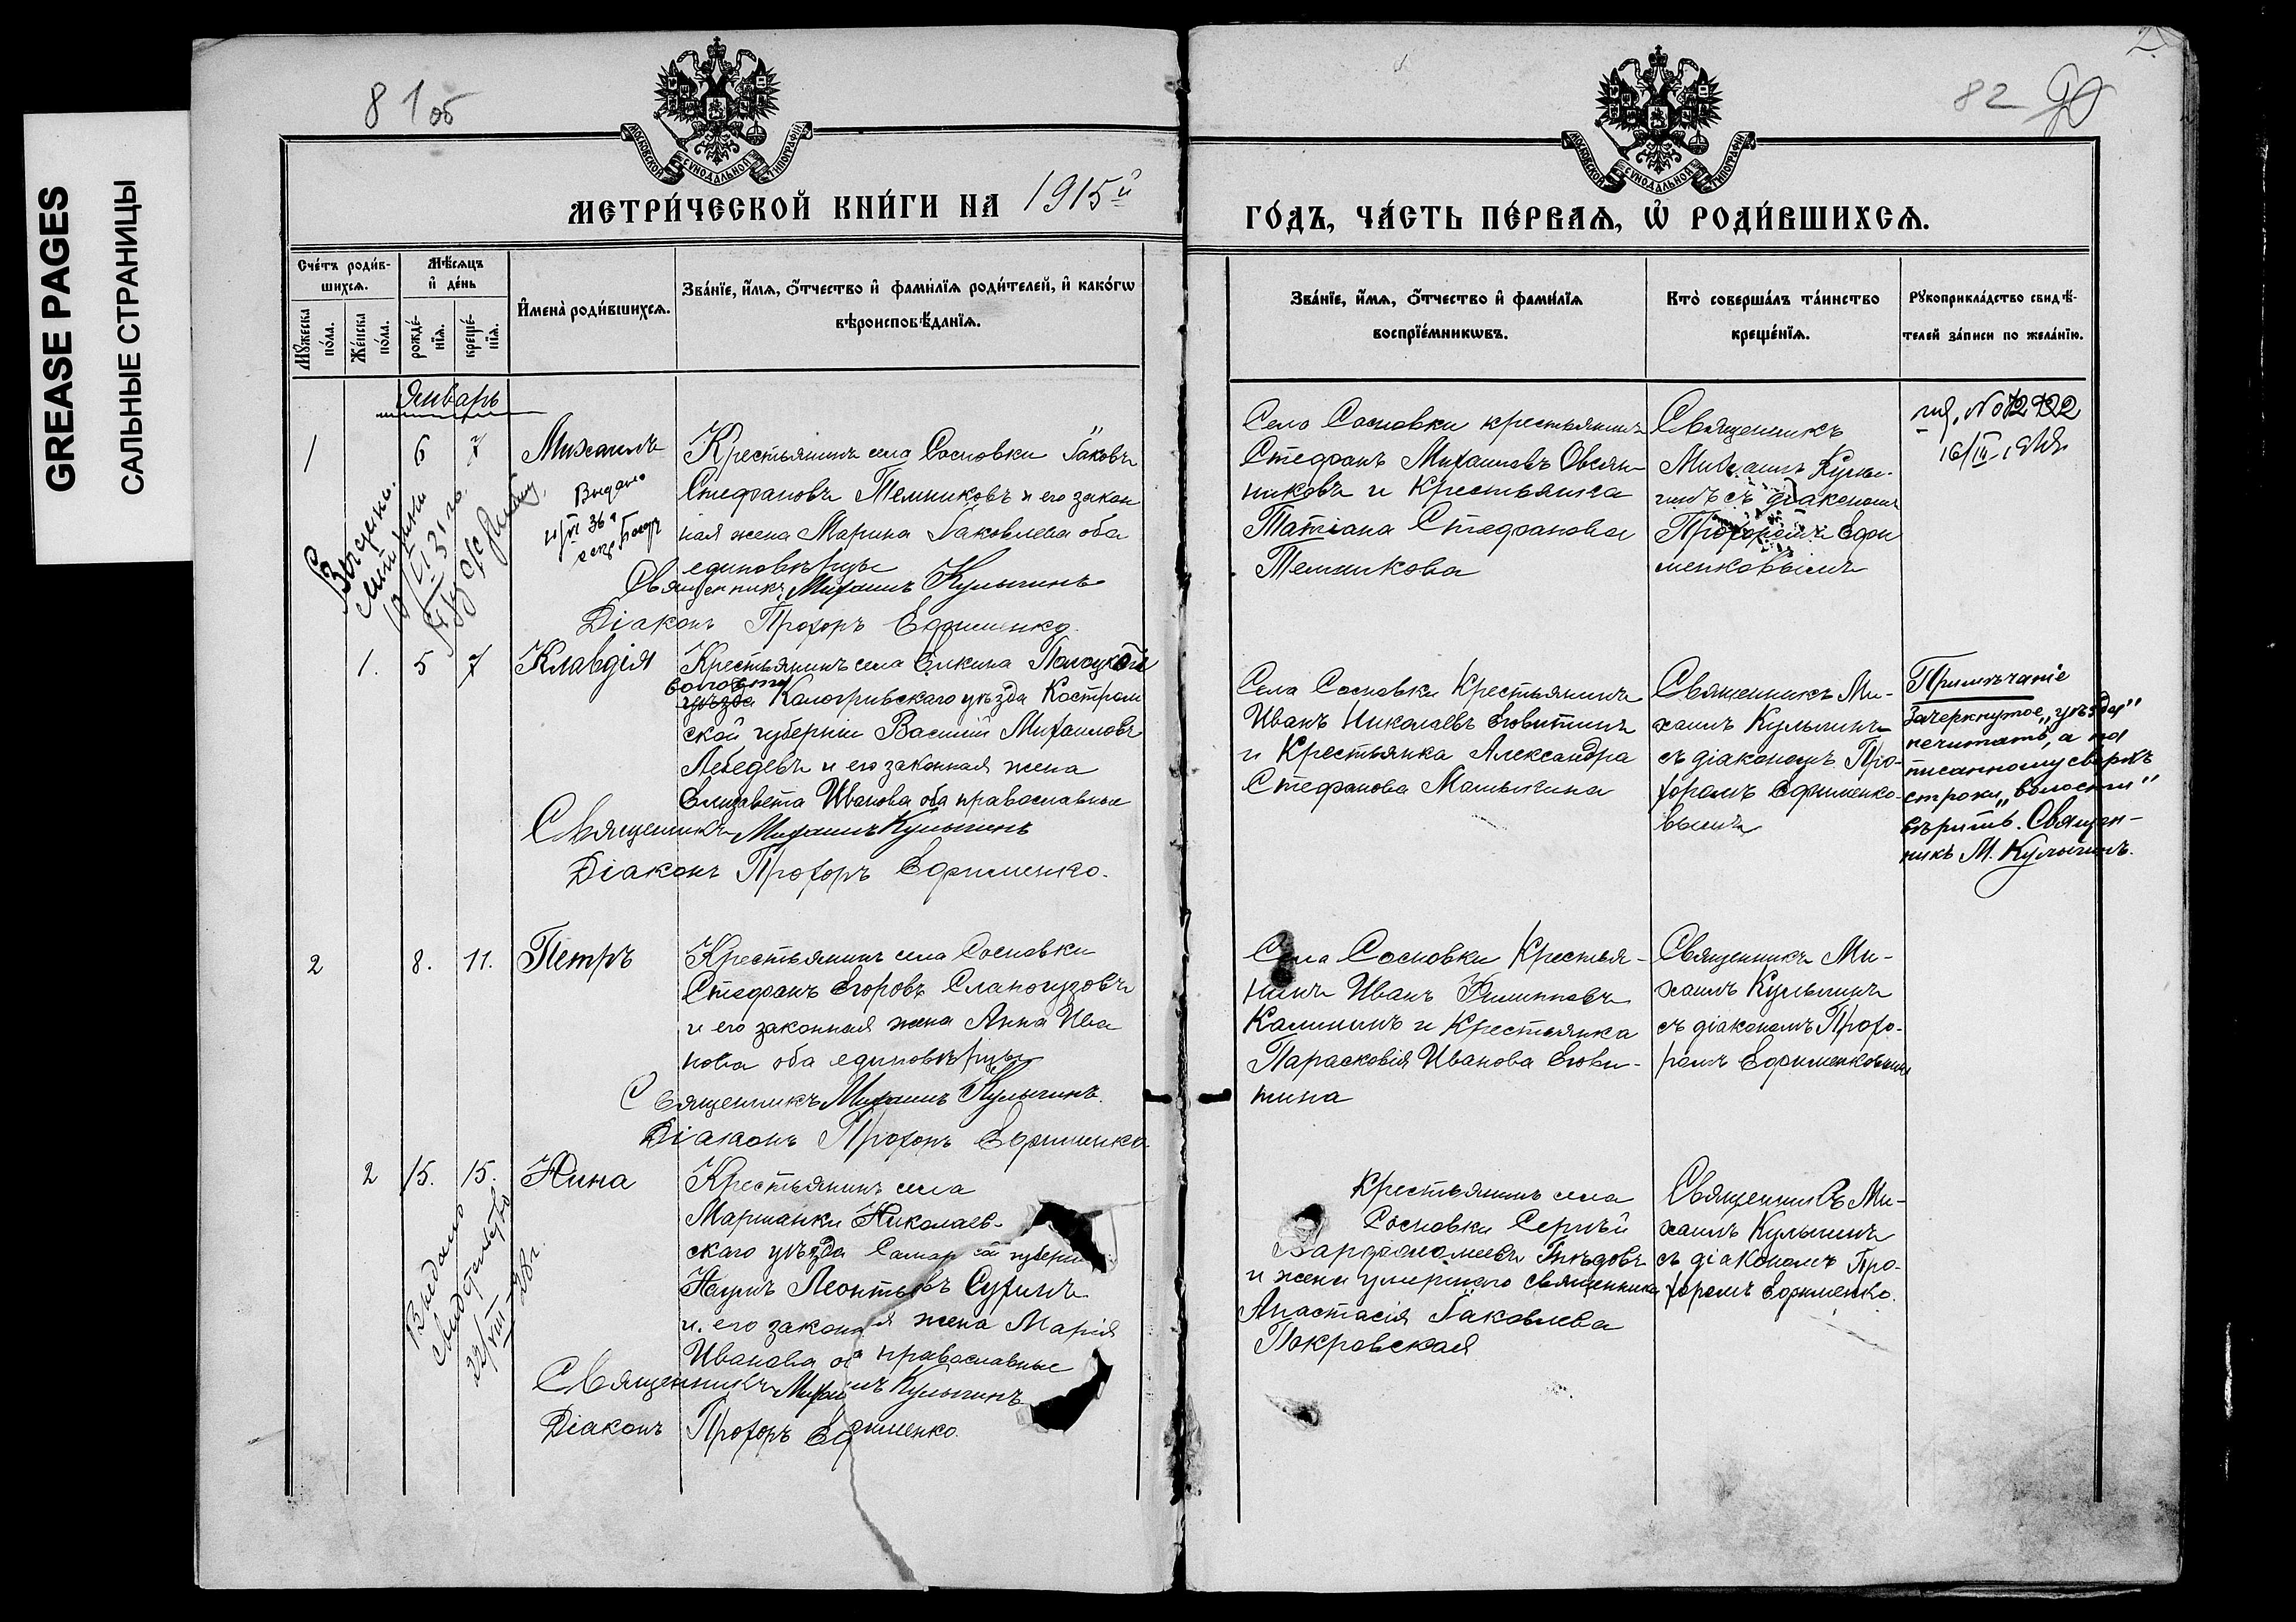 GREASE PAGES
САЛЬНЫЕ СТРАНИЦЫ
81об
МОСКОВСКОЙ СѴНОДАЛЬНОЙ ТИПОГРАФІИ
МЕТРИ́ЧЕСКОЙ КНИ́ГИ НА 1915й
Сче́тъ роди́в-
шихсѧ.
Мѣ́сѧцъ
и҆ де́нь
Мꙋ́жеска
по́ла.
Же́нска
по́ла.
рожде́-
нїѧ.
креще́-
нїѧ.
И҆мена̀ роди́вшихсѧ.
Зва́нїе, и҆́мѧ, ѻ҆́тчество и҆ фами́лїѧ роди́телей, и҆ како́гѡ
вѣроисповѣ́данїѧ.
Январь
1 6 7 Михаилъ
Крестьянинъ села Сосновки Іаковъ
Стефановъ Темниковъ и его закон
ная жена Марина Іаковлева оба
единовѣрцы
Выдано
Священникъ Михаилъ Кулыгинъ
Діаконъ Прохоръ Ефименко.
1. 5 7 Клавдія
Крестьянинъ села Елкина
волости
уѣзда Кологривскаго уѣзда Костром
ской губерніи Василій Михаиловъ
Лебедевъ и его законная жена
Елизавета Иванова оба православные
Священникъ Михаилъ Кулыгинъ
Діаконъ Прохоръ Ефименко.
2 8. 11. Петръ
Крестьянинъ села Сосновки
Стефанъ Егоровъ Слапогузовъ
и его законная жена Анна Ива
нова оба единовѣрцы
Священникъ Михаилъ Кулыгинъ.
Діаконъ Прохоръ Ефименко
2 15. 15. Нина
Крестьянинъ села
Марианки Николаев-
скаго уѣзда Самар ой губерніи
Наумъ Леонтьевъ Сухинъ
и его законная жена Марія
Иванова оба православные
Выдано
свидетельство
22/VIII-28г.
Священникъ Михаилъ Кулыгинъ
Діаконъ Прохоръ Ефименко.
82
МОСКОВСКОЙ СѴНОДАЛЬНОЙ ТИПОГРАФІИ
ГО́ДЪ, ЧА́СТЬ ПЕ́РВАѦ, Ѡ҆ РОДИ́ВШИХСѦ.
Зва́нїе, и҆́мѧ, ѻ҆́тчество и҆ фами́лїѧ
воспрїе́мникѡвъ.
Кто̀ соверша́лъ та́инство
креще́нїѧ.
Рꙋкоприкла́дство свидѣ́-
телей за́писи по жела́нїю.
Село Сосновки крестьянинъ
Стефанъ Михаиловъ Овсян-
никовъ и крестьянка
Татіана Стефанова
Темникова
Священникъ
Михаилъ Кулы-
гинъ съ діакономъ
Прохоромъ Ефи
менковымъ
Села Сосновки Крестьянинъ
Иванъ Николаевъ Еювитинъ
и Крестьянка Александра
Стефанова Малыгина
Священникъ Ми-
хаилъ Кулыгинъ
съ діакономъ Про-
хоромъ Ефименко-
вымъ
Примѣчаніе
Зачеркнутое „уѣзда"
нечитать, а на
писанному сверхъ
строки „волости"
вѣрить. Священ-
никъ М. Кулыгинъ.
Села Сосновки Крестья-
нинъ Иванъ Филипповъ
Калининъ и Крестьянка
Парасковія Иванова Еюви-
тина
Священникъ Ми-
хаилъ Кулыгинъ
съ діакономъ Прохо-
ромъ Ефименковымъ
Крестьянинъ села
Сосновки Сергѣй
Варфоломеевъ Гнѣдовъ
и жена умершаго священника
Анастасія Іаковлева
Покровская
Священникъ Ми-
хаилъ Кулыгинъ
съ діакономъ Про-
хоромъ Ефименко.